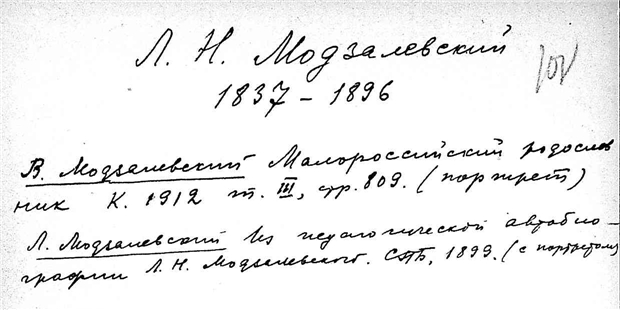 Л. Н. Модзалевский
1837 – 1896
В. Модзалевский Малороссийский родослов
ник К. 1912 т. III, стр. 809. (портрет)
Л. Модзалевский Из педагогической автобио-
графии Л. Н. Модзалевского. СПБ, 1899. (с портретом)